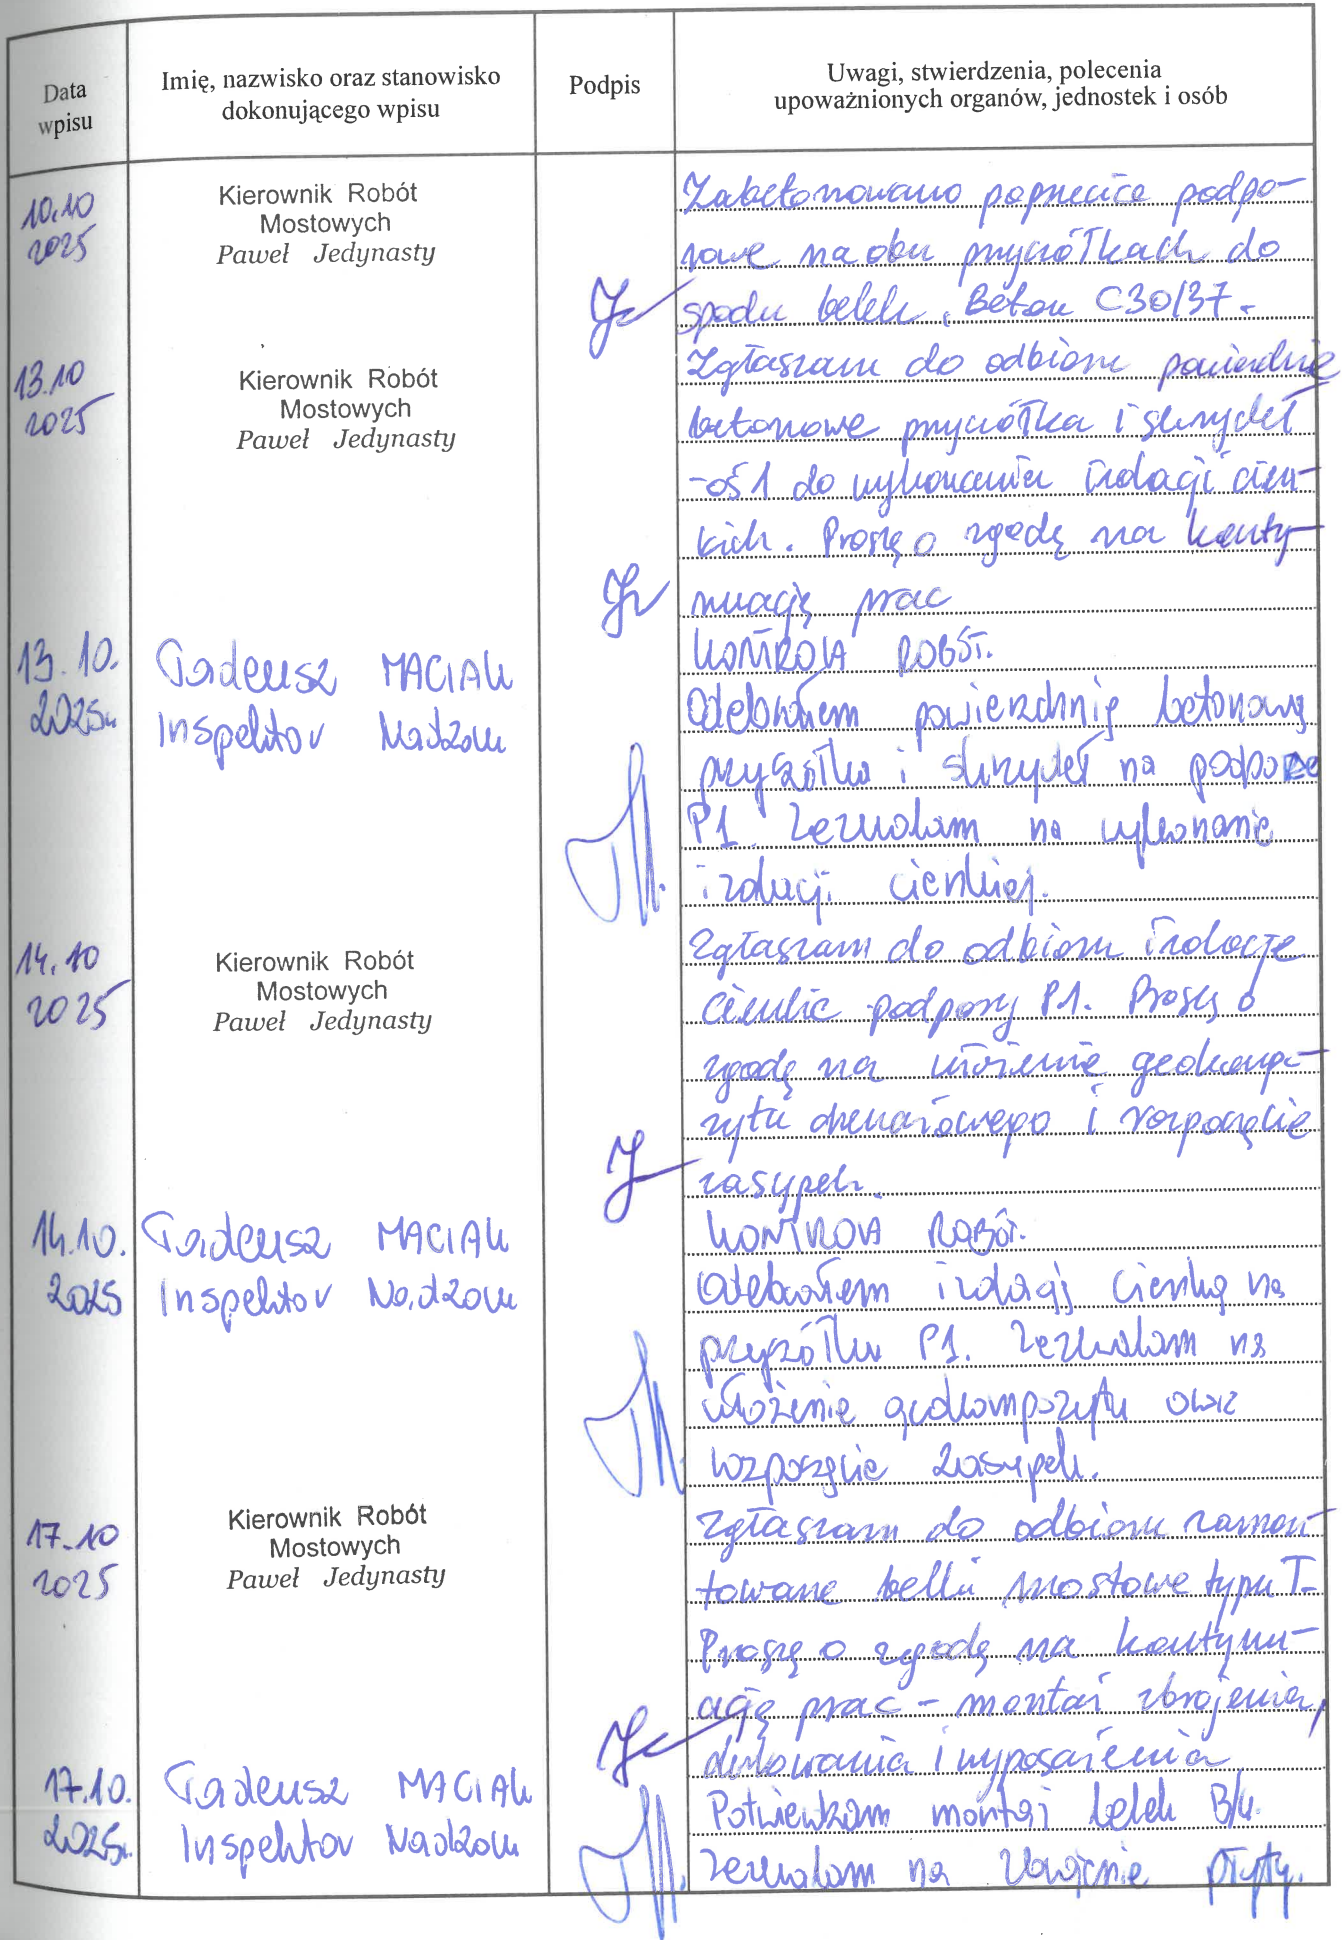 Data wpisu
Imię, nazwisko oraz stanowisko dokonującego wpisu
Podpis
Uwagi, stwierdzenia, polecenia upoważnionych organów, jednostek i osób
10.10 2025
Kierownik Robót
Mostowych
Paweł Jedynasty
Zabetonowano poprzecice podpo-
rowe na obu przyczółkach do
spodu belek. Beton C30/37.
13.10 2025
Kierownik Robót
Mostowych
Paweł Jedynasty
Zgłaszam do odbioru powierzchnie
betonowe przyczółka i skrzydeł
-oś 1 do wykonania izolacji cien-
kich. Proszę o zgodę na konty-
nuację prac
13.10. 2025r.
Tadeusz MACIAK
Inspektor Nadzoru
KONTROLA ROBÓT.
Odebrałem powierzchnię betonową
przyczółka i skrzydeł na podporze
P1. Zezwalam na wykonanie
izolacji cienkiej.
14.10 2025
Kierownik Robót
Mostowych
Paweł Jedynasty
Zgłaszam do odbioru izolację
cienkie podpory P1. Proszę o
zgodę na ułożenie geokompo-
zytu drenażowego i rozpoczęcie
zasypek.
14.10. 2025
Tadeusz MACIAK
Inspektor Nadzoru
KONTROLA ROBÓT.
Odebrałem izolację cienką na
przyczółku P1. Zezwalam na
ułożenie geokompozytu oraz
rozpoczęcie zasypek.
17.10 2025
Kierownik Robót
Mostowych
Paweł Jedynasty
Zgłaszam do odbioru zamon-
towane belki mostowe typu T.
Proszę o zgodę na kontynu-
ację prac - montaż zbrojenia,
deskowania i wyposażenia
17.10. 2025r.
Tadeusz MACIAK
Inspektor Nadzoru
Potwierdzam montaż belek
Zezwalam na zbrojenie płyty.